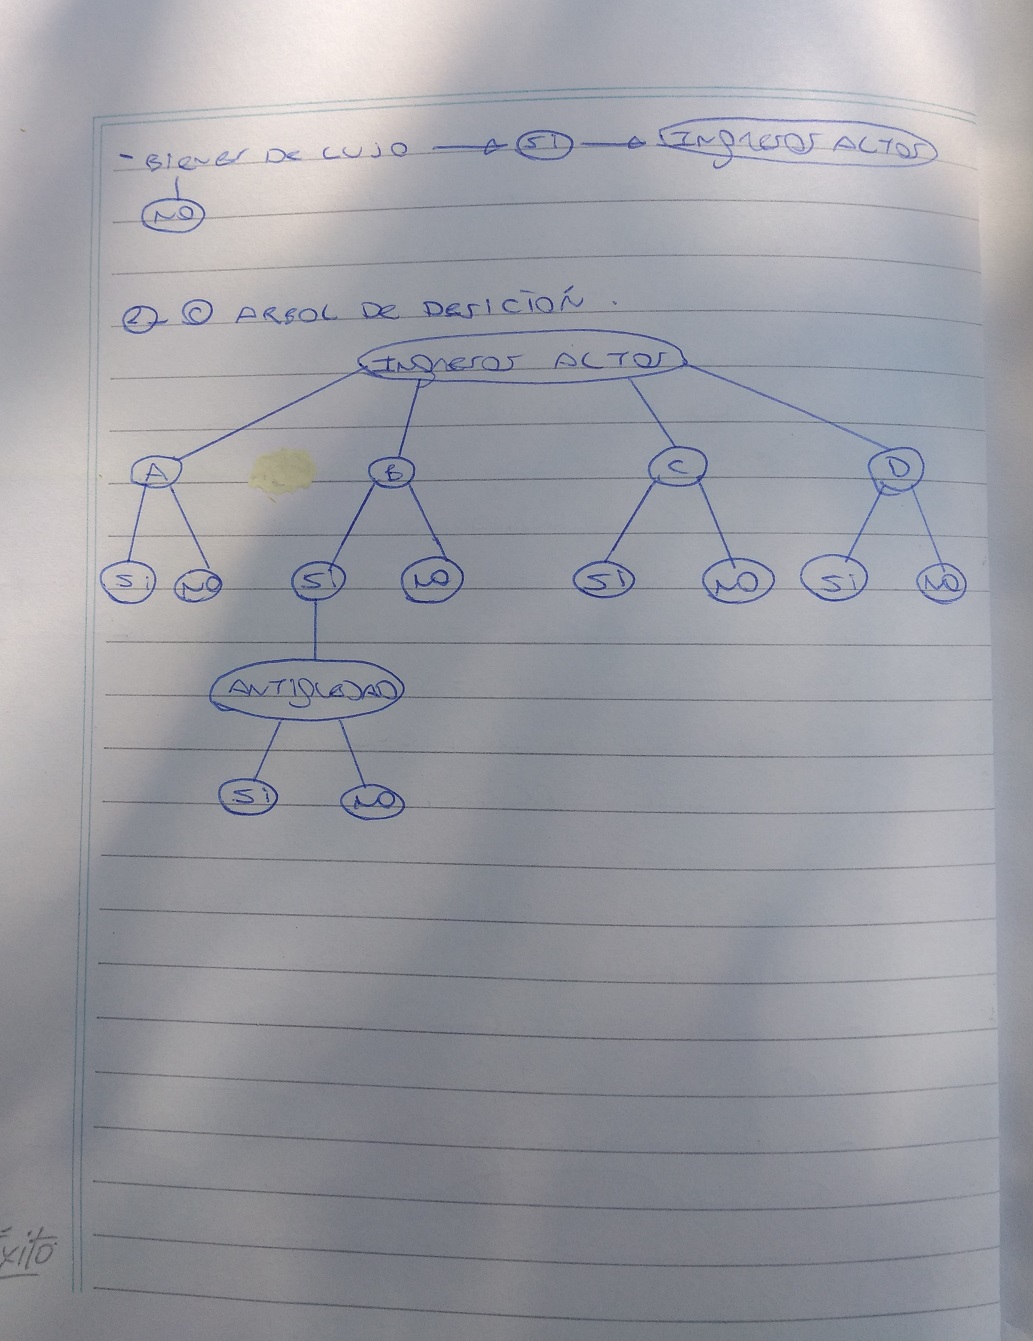 - BIENES DE LUJO → SI → INgresos ALTOS
NO
2) C ARBOL DE DESICIÓN.
INgresos ALTOS
A B C D
Si NO Si NO SI NO Si NO
ANTIgUEDAD
Si NO
éxito